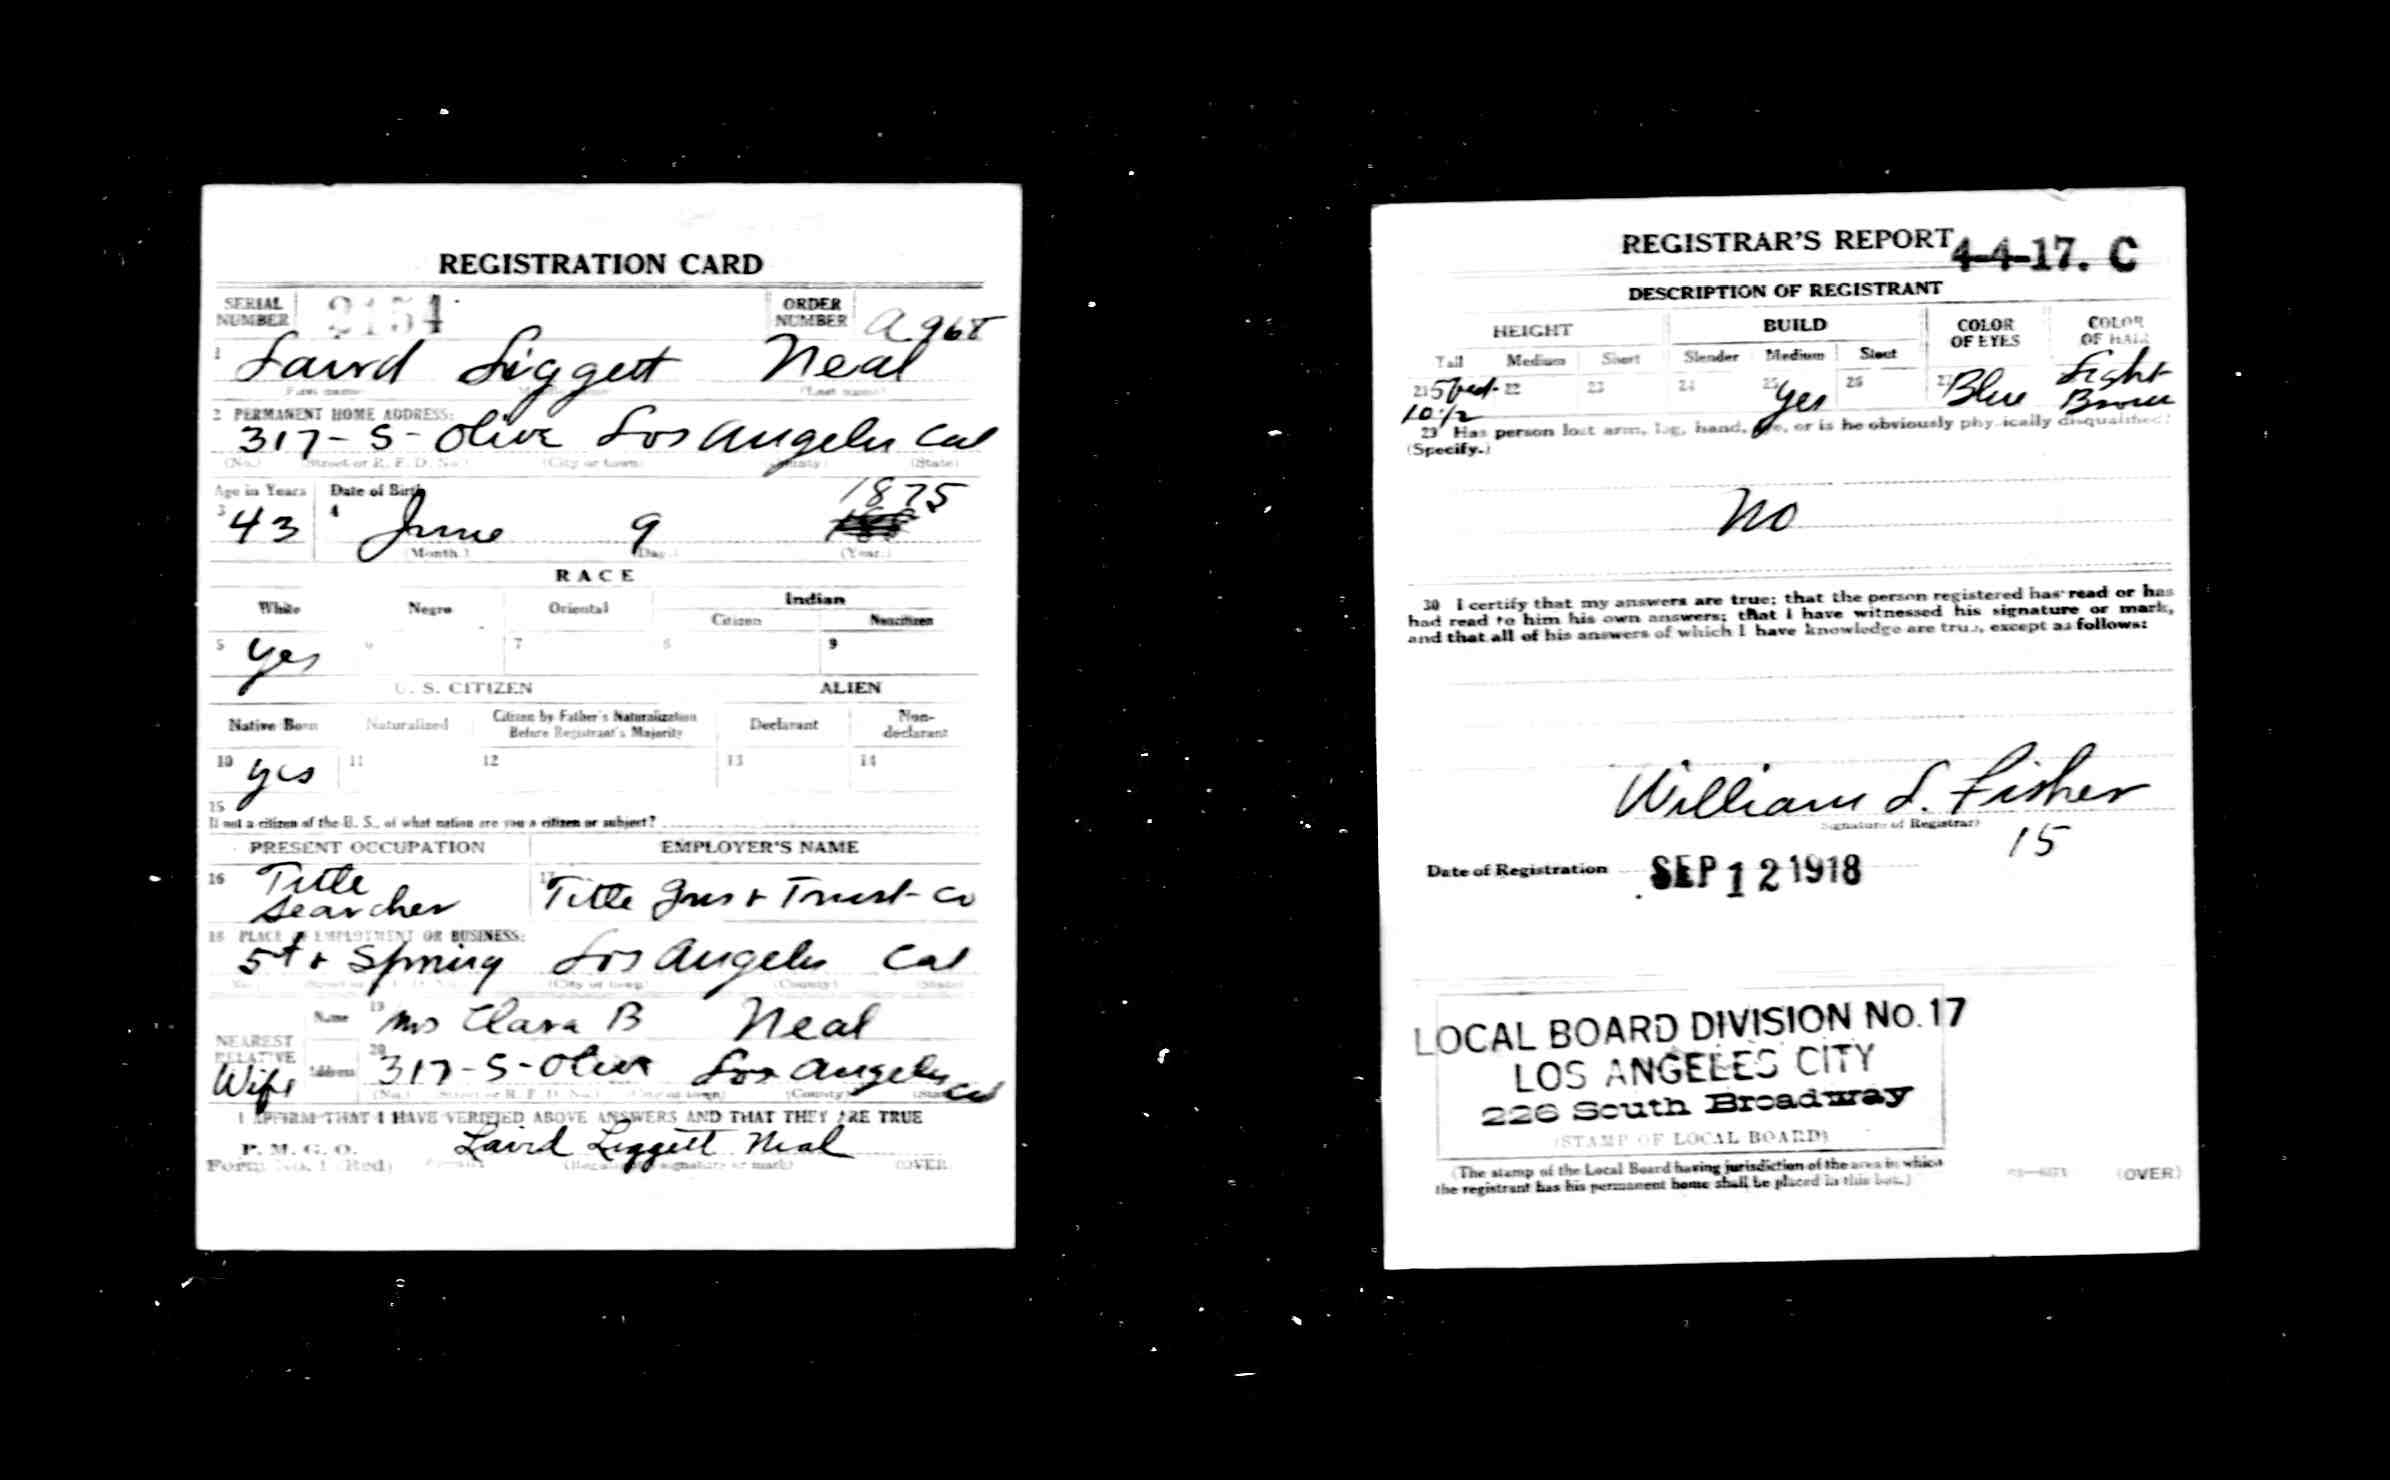 REGISTRATION CARD
SERIAL NUMBER 2154 ORDER NUMBER
1 Laird Liggett Neal
(First name) (Last name)
2 PERMANENT HOME ADDRESS:
317-S-Olive Los Angeles Cal
(No.) (Street or R. F. D. No.) (City or town) (County) (State)
Age in Years Date of Birth 1875
3 43 4 June 9
(Month.) (Day.) (Year.)
RACE
White Negro Oriental Indian
Citizen Noncitizen
5 Yes 6 7 8 9
U. S. CITIZEN ALIEN
Native Born Naturalized Citizen by Father's Naturalization Before Registrant's Majority Declarant Non-declarant
10 yes 11 12 13 14
15
If not a citizen of the U. S., of what nation are you a citizen or subject?
PRESENT OCCUPATION EMPLOYER'S NAME
16 Title Searcher 17 Title Ins + Trust Co
18 PLACE OF EMPLOYMENT OR BUSINESS:
5t + Spring Los Angeles Cal
(No.) (City or town) (County) (State)
NEAREST RELATIVE Wife
Name 19 Mrs Clara B Neal
Address 20 317-S-Olive Los Angeles Cal
(No.) (Street or R. F. D. No.) (City or town) (County) (State)
I AFFIRM THAT I HAVE VERIFIED ABOVE ANSWERS AND THAT THEY ARE TRUE
P. M. G. O.
Form No. 1 (Red) Laird Liggett Neal
(Registrant's signature or mark) (OVER)
REGISTRAR'S REPORT 4-4-17. C
DESCRIPTION OF REGISTRANT
HEIGHT BUILD COLOR OF EYES COLOR OF HAIR
Tall Medium Short Slender Medium Stout
21 5 feet- 10 1/2 22 23 24 25 Yes 26 27 Blue Light Brown
29 Has person lost arm, leg, hand, eye, or is he obviously physically disqualified?
(Specify.)
No
30 I certify that my answers are true; that the person registered has read or has
had read to him his own answers; that I have witnessed his signature or mark,
and that all of his answers of which I have knowledge are true, except as follows:
William S. Fisher
(Signature of Registrar)
15
Date of Registration SEP 12 1918
LOCAL BOARD DIVISION No. 17
LOS ANGELES CITY
226 South Broadway
(STAMP OF LOCAL BOARD)
(The stamp of the Local Board having jurisdiction of the area in which
the registrant has his permanent home shall be placed in this box.)
(OVER)